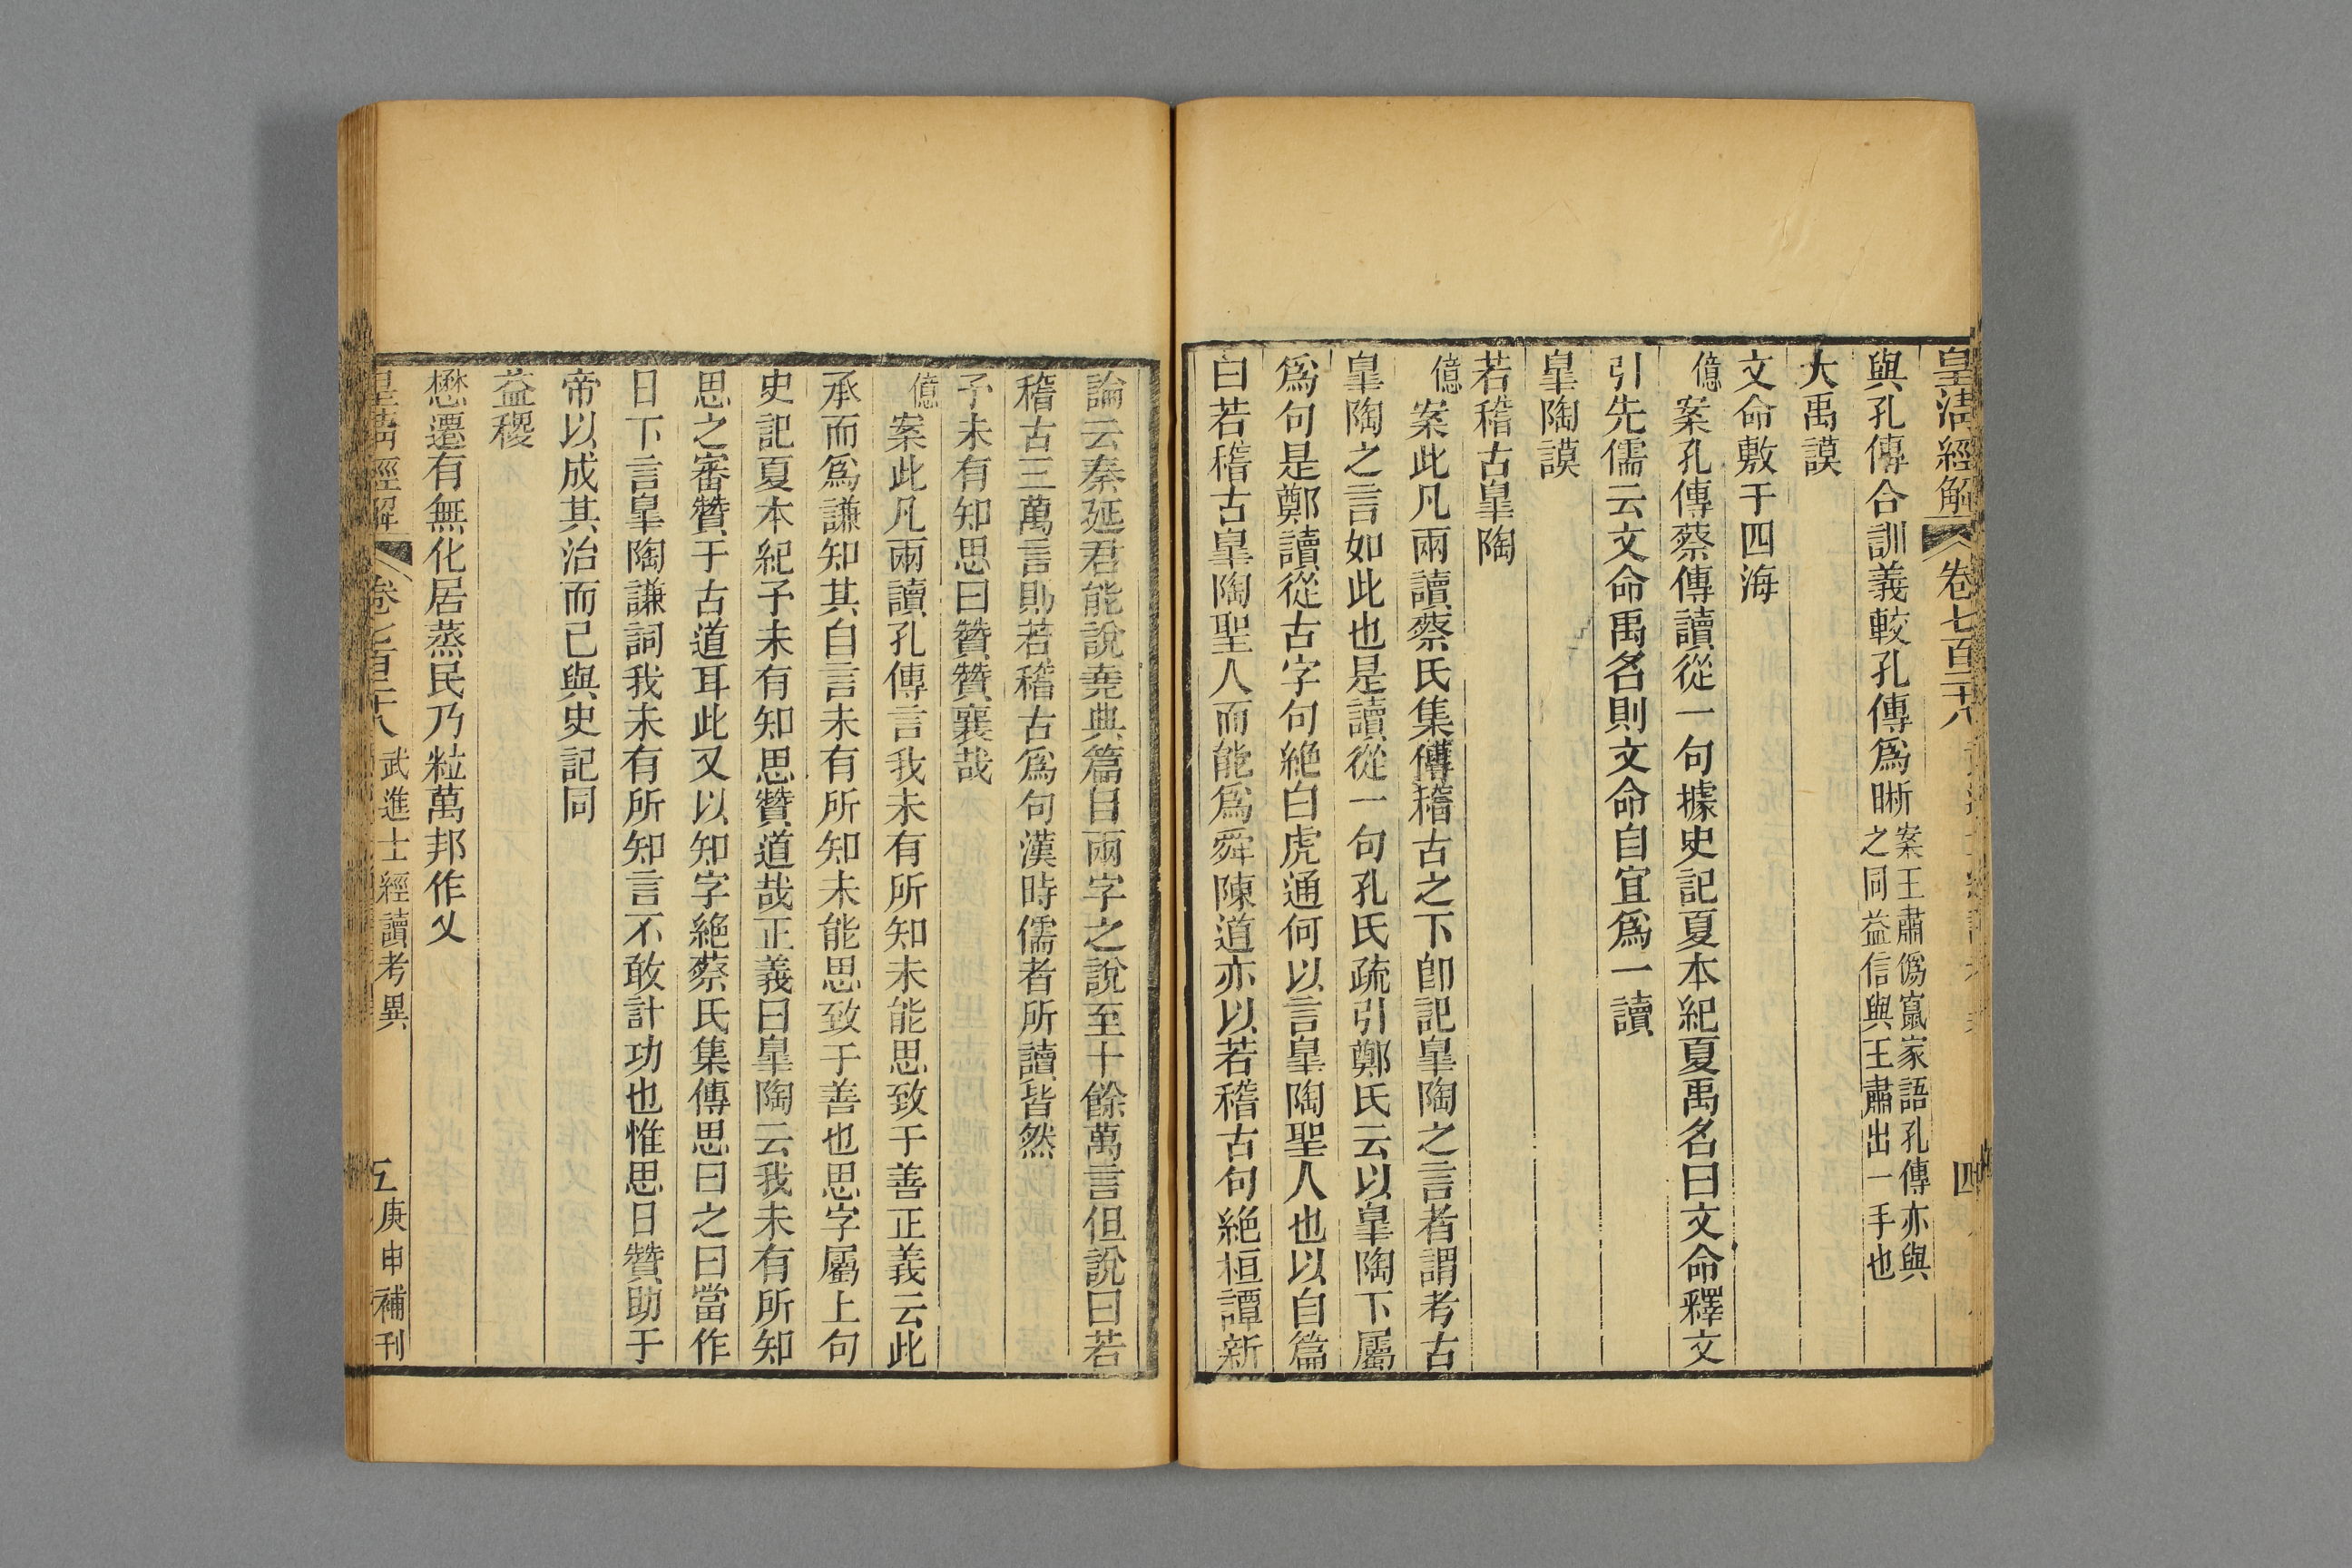 皇清經解 卷七百二十八 四
與孔傳合訓義較孔傳爲晰案王肅僞竄家語孔傳亦與之同益信與王肅出一手也
大禹謨
文命敷于四海
億案孔傳蔡傳讀從一句據史記夏本紀夏禹名曰文命釋文
引先儒云文命禹名則文命自宜爲一讀
皐陶謨
若稽古皐陶
億案此凡兩讀蔡氏集傳稽古之下卽記皐陶之言者謂考古
皐陶之言如此也是讀從一句孔氏疏引鄭氏云以皐陶下屬
爲句是鄭讀從古字句絶白虎通何以言皐陶聖人也以自篇
白若稽古皐陶聖人而能爲舜陳道亦以若稽古句絶桓譚新
論云秦延君能說堯典篇目兩字之說至十餘萬言但說曰若
稽古三萬言則若稽古爲句漢時儒者所讀皆然
予未有知思曰贊贊襄哉
億案此凡兩讀孔傳言我未有所知未能思致于善正義云此
承而爲謙知其自言未有所知未能思致于善也思字屬上句
史記夏本紀予未有知思贊道哉正義曰皐陶云我未有所知
思之審贊于古道耳此又以知字絶蔡氏集傳思曰之曰當作
日下言皐陶謙詞我未有所知言不敢計功也惟思日贊助于
帝以成其治而已與史記同
益稷
懋遷有無化居蒸民乃粒萬邦作乂
皇清經解 卷七百二十八 武進士經讀考異 五 庚申補刊